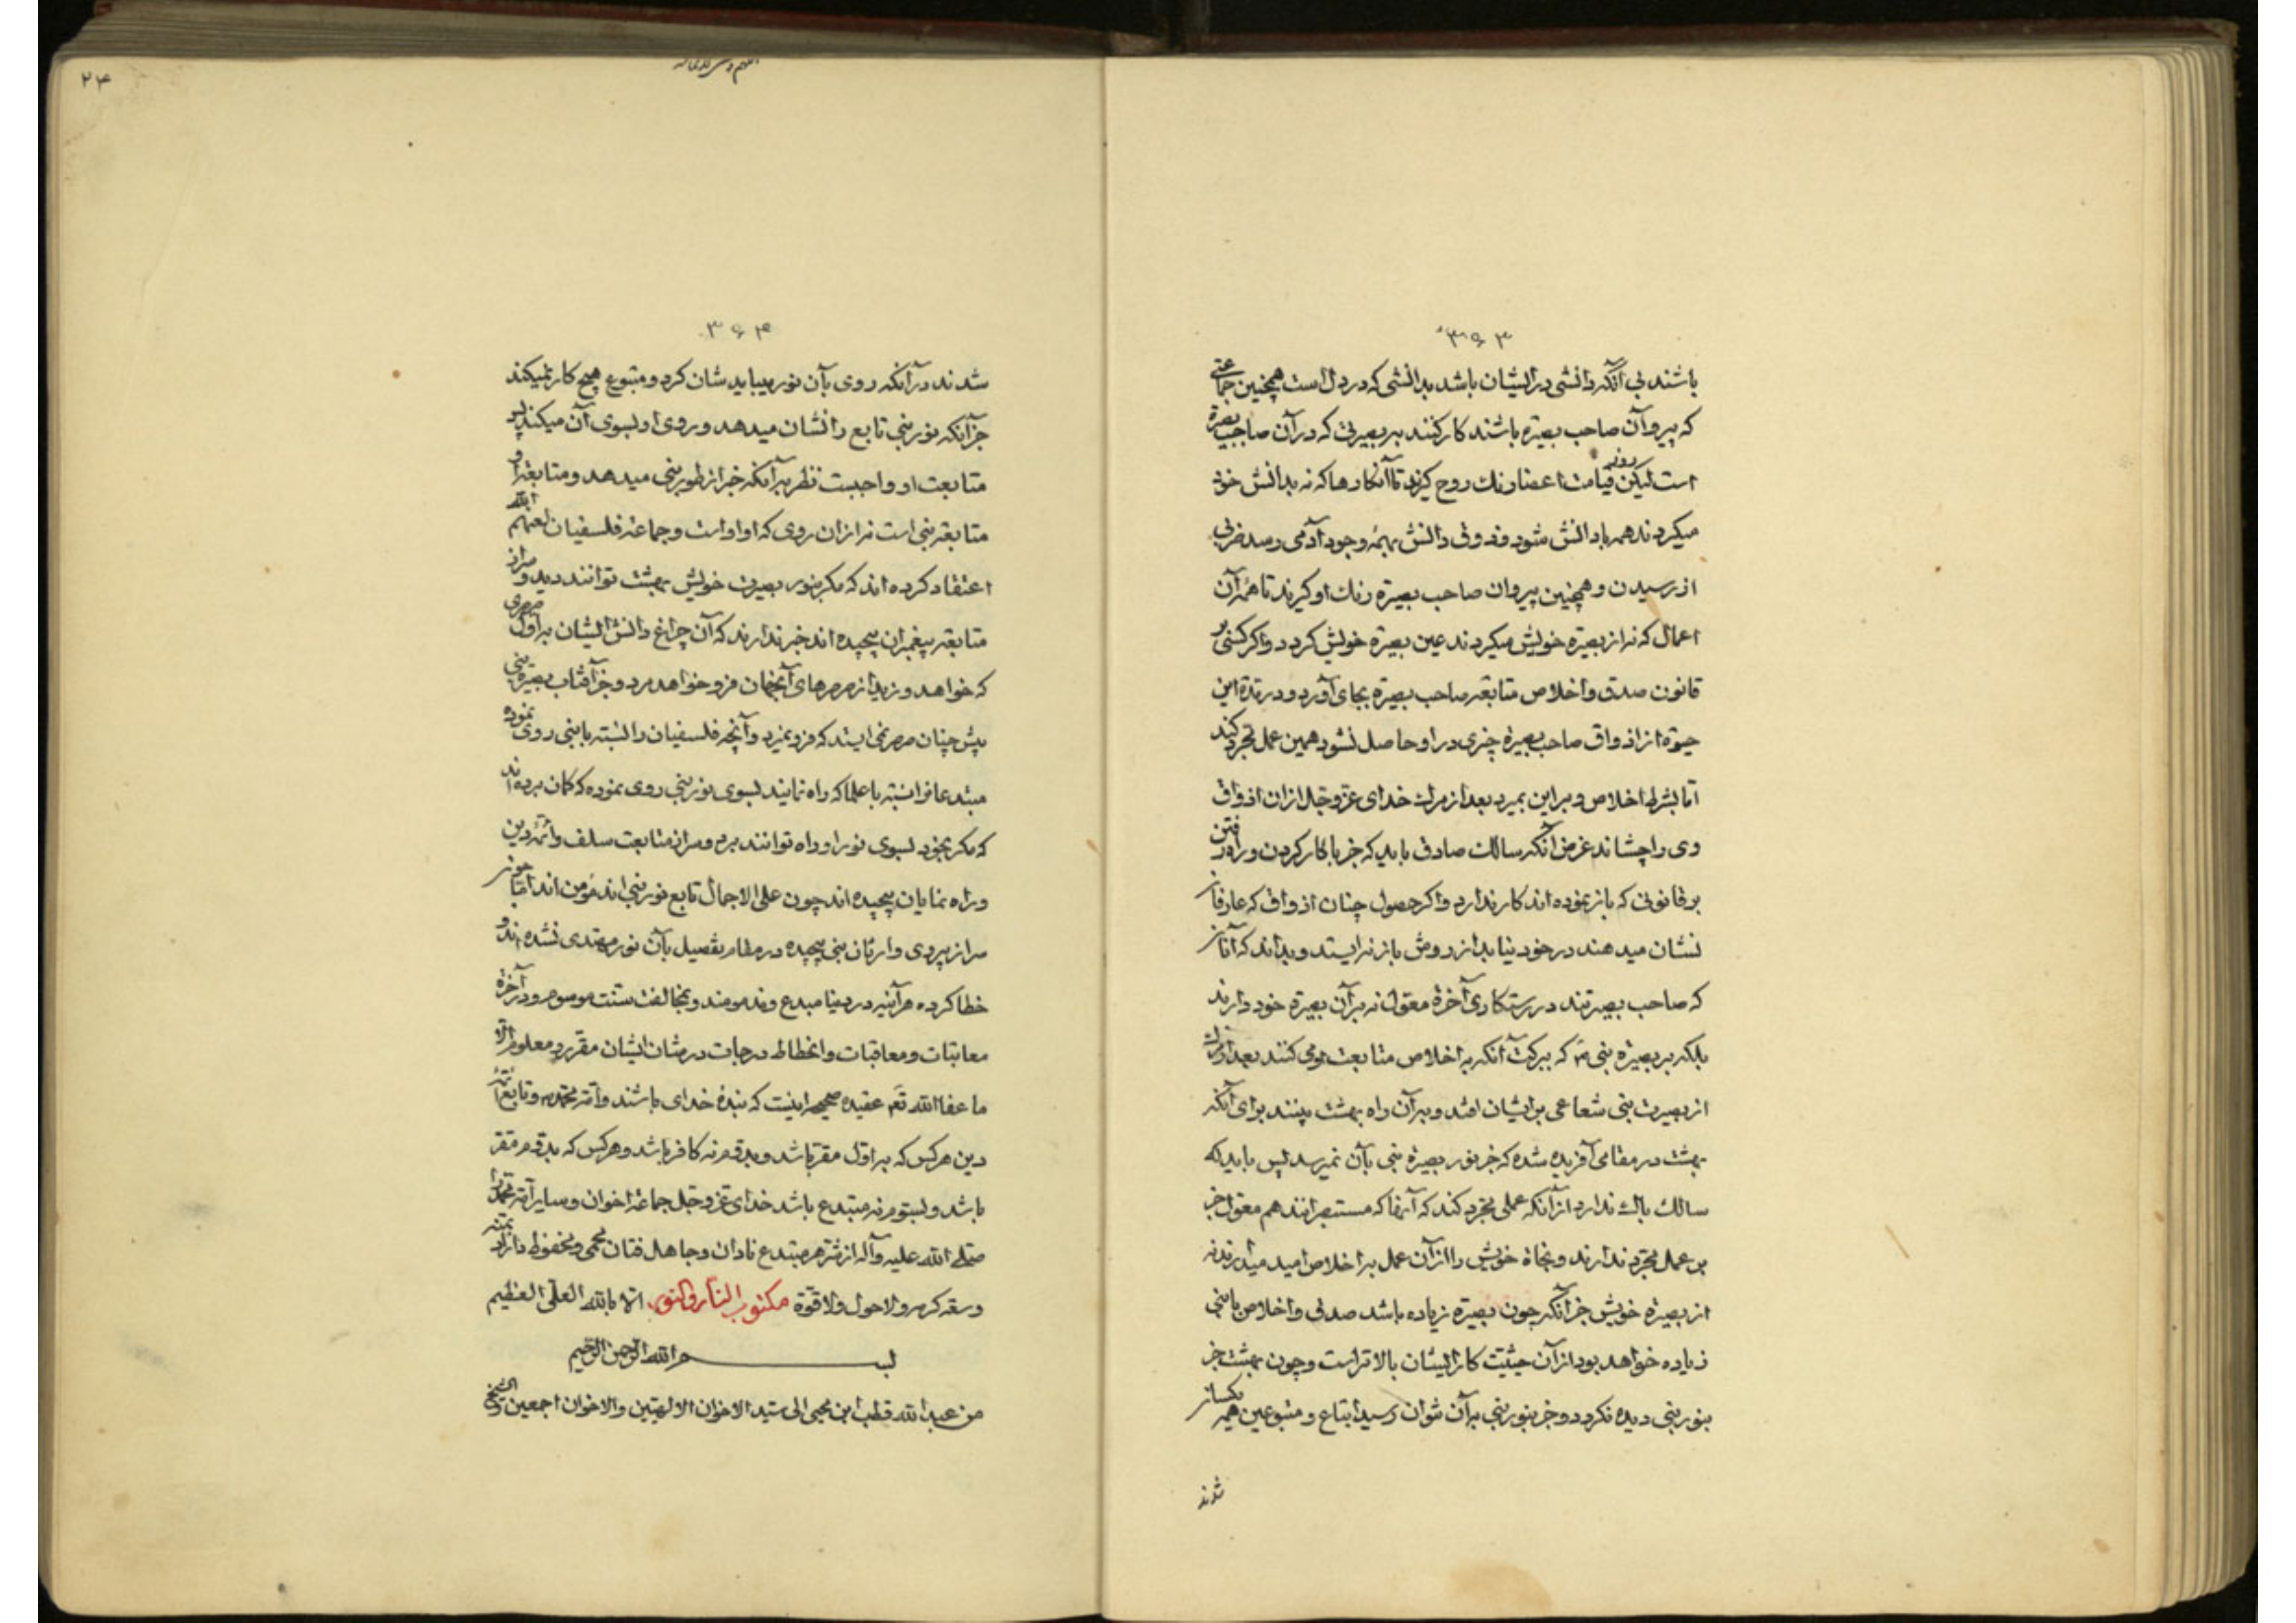 ۳۶۳
باشند بی آنکه دانشی در ایشان باشد بدانشی که در دل است همچنین جماعتی
که پیرو آن صاحب بصیرة باشند کار کنند ببصیرتی که در آن صاحب بصیرة
است لیکن روز قیامت اعضا رنك روح گیرند تا آنکارها که نه بدانش خود
میکردند همه با دانش شود و ذوق دانش بهمه وجود آدمی رسد
از رسیدن و همچنین پیروان صاحب بصیرة رنك او گیرند تا همه آن
اعمال که نه از بصیرة خویش میکردند عین بصیرة خویش گردد و اگر کسی بر
قانون صدق و اخلاص متابعة صاحب بصیرة بجای آورد و در مدة این
حیوة از اذواق صاحب بصیرة چیزی در او حاصل نشود همین عمل مجرد کند
اما بشرط اخلاص و بر این بمیرد بعد از مرك خدای عز و جل از آن اذواق
وی را چشاند غرض آنکه سالك صادق باید که جز با کار کردن و راه رفتن
بر قانونی که باز نموده اند کار ندارد و اگر حصول چنان اذواق که عارفان
نشان میدهند در خود نیابد از روش باز نه ایستد و بداند که آنان
که صاحب بصیرتند در رستکاری آخرة معول نه بر آن بصیرة خود دارند
بلکه بر بصیرة نبی که ببرکت آنکه به اخلاص متابعت او می کنند بعد از مرك
از بصیرت نبی شعاعی بر ایشان افتد و بر آن راه بهشت بینند برای آنکه
بهشت در مقامی آفریده شده که جز نور بصیرة نبی بآن نمیرسد پس باید که
سالك باك ندارد از آنکه عملی مجرد کند که آنها که مستبصرانند هم معول جز
بر عمل مجرد ندارند و نجاة خویش را از آن عمل بر اخلاص امید میدارند نه
از بصیرة خویش جز آنکه چون بصیرة زیاده باشد صدق و اخلاص با نبی
زیاده خواهد بود از آن حیثیت کار ایشان بالاتر است و چون بهشت جز
بنور نبی دیده نکردد و جز بنور نبی بر آن نتوان رسید اتباع و متبوعین همه یکسان
شدند
۲۴
۳۶۴
شدند در آنکه روی بآن نور میباید شان کرد و متبوع هیچ کار نمیکند
جز آنکه نور نبی تابع را نشان میدهد و روی او بسوی آن میکند پس
متابعت او واجبست نظر بر آنکه خبر از ظهور نبی میدهد و متابعة او
متابعة نبی است نه از آن روی که او اوست و جماعة فلسفیان لعنهم الله
اعتقاد کرده اند که مکر بنور بصیرت خویش بهشت توانند دید و سر از
متابعة پیغمبران پیچیده اند خبر ندارند که آن چراغ دانش ایشان بر اول صرصری
که خواهد وزید از صرصرهای آنجهان فرو خواهد مرد و جز آفتاب بصیرة نبی
پیش چنان صرصر نمی ایستد که فرو نمیرد و آنچه فلسفیان را نسبة با نبی روی نموده
مبتدعان را نسبة با علما که راه نمایند بسوی نور نبی روی نموده که کمان برده اند
که مکر بخود بسوی نور او راه توانند برد و سر از متابعت سلف و ائمه دین
و راه نمایان پیچیده اند چون علی الاجمال تابع نور نبی اند مؤمن اند اما چون
سر از پیروی وارثان نبی پیچیده در مقام تفصیل بآن نور مهتدی نشده اند و
خطا کرده هر آینه در دنیا مبدع و مذمومند و بمخالفت سنت موسوم و در آخرة
معاتبات و معاقبات و انحطاط درجات در شان ایشان مقرر و معلوم الا
ما عفا الله تعم عقیده صحیحه اینست که بندۀ خدای باشند و امة محمد و تابع ائمه
دین هر کس که بر اول مقر باشد و بدوم نه کافر باشد و هر کس که بدوم مقر
باشد و بسیوم نه مبتدع باشد خدای عز و جل جماعة اخوان و سایر امة محمد را
صلی الله علیه و آله از شر هر مبتدع نادان و جاهل فتان محمی و محفوظ داراد بمنه
و سعة کرمه و لا حول و لا قوة مکتوب النار والنور الا بالله العلی العظیم
بسم الله الرحمن الرحیم
من عبد الله قطب ابن محیی الی سید الاخوان الالهیین و الاخوان اجمعین الشیخ